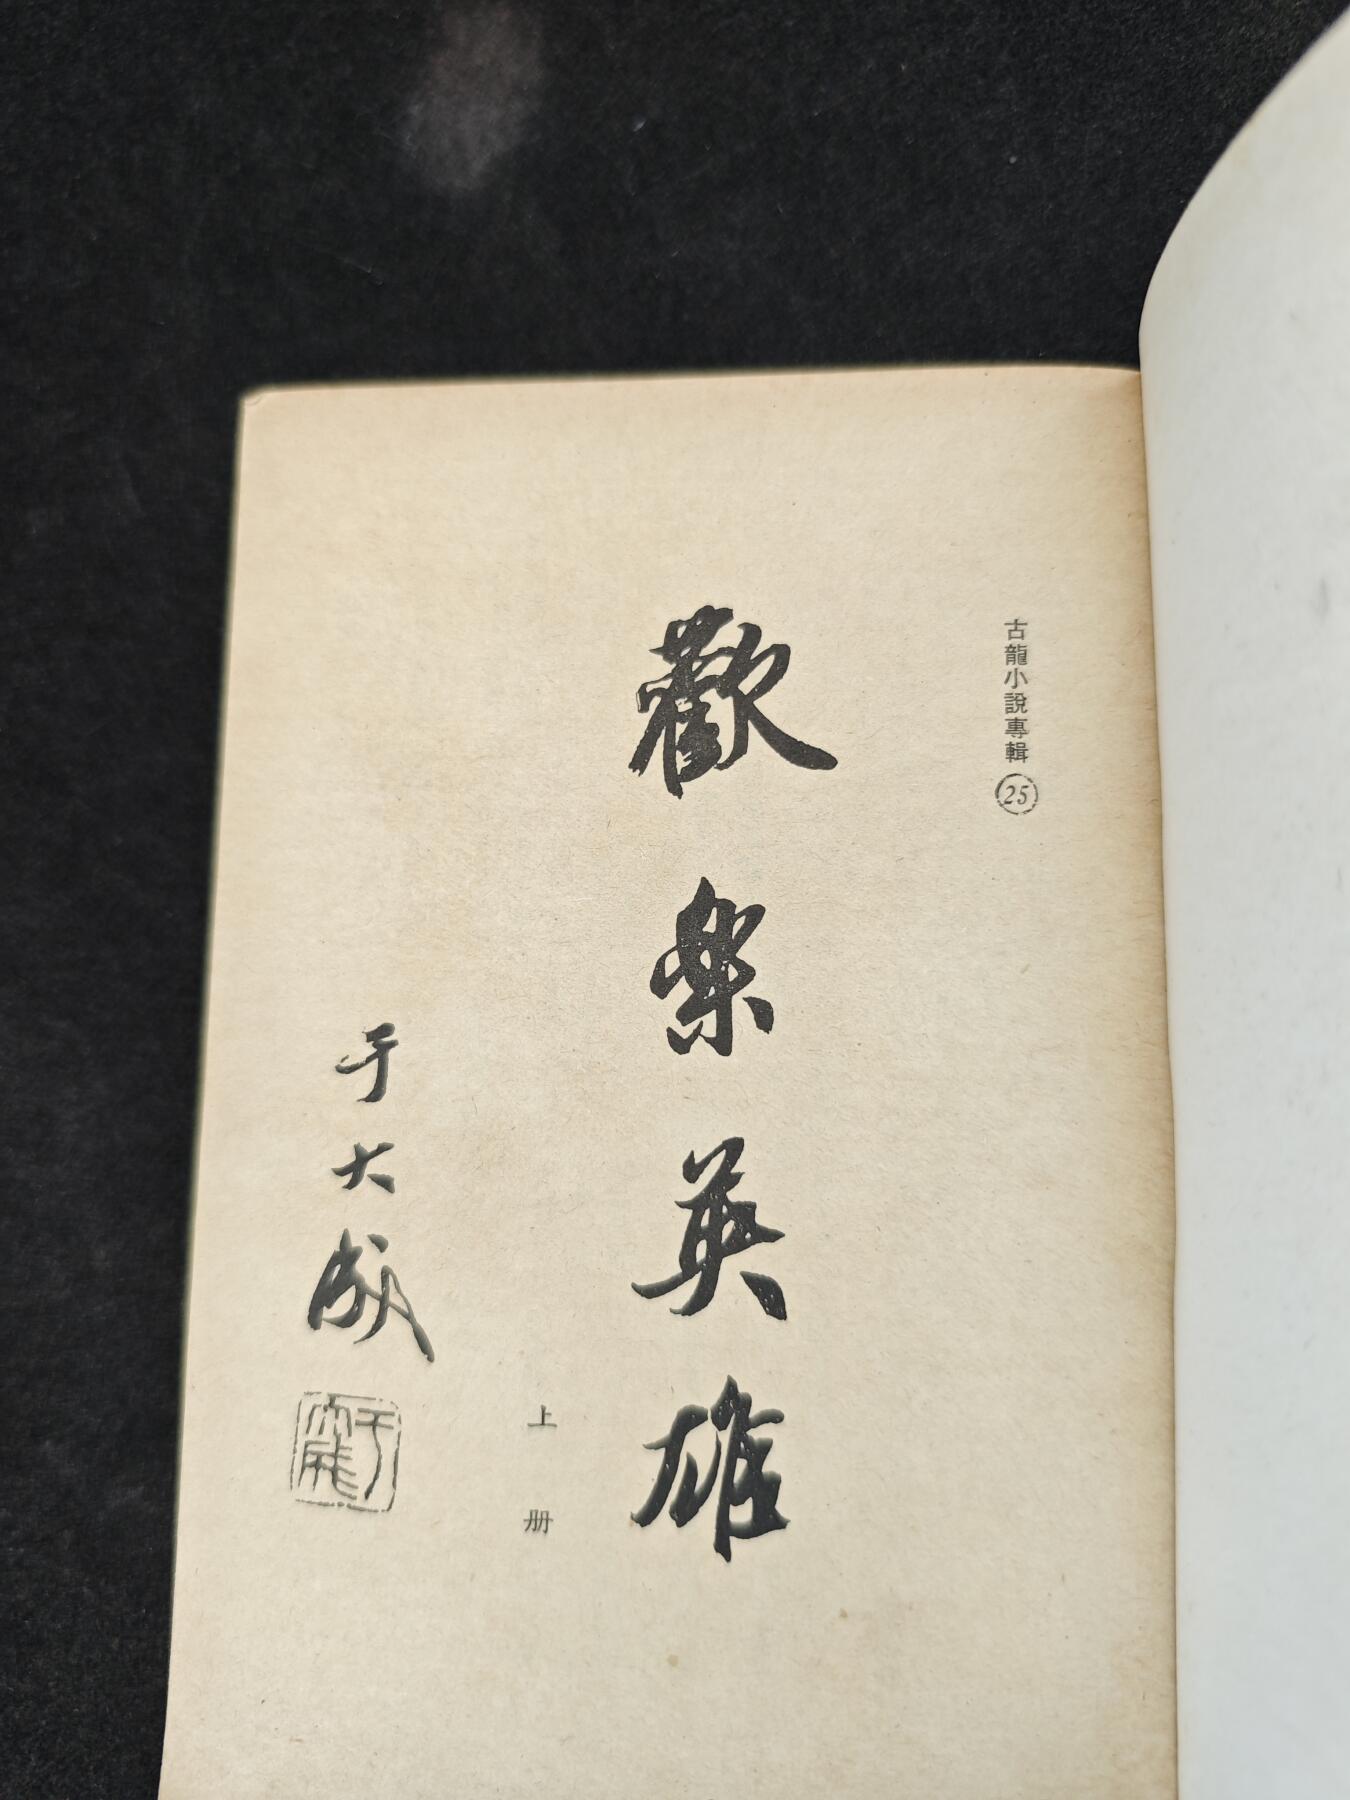 古龍小說專輯 25
歡樂英雄
上册
于大成
于大成